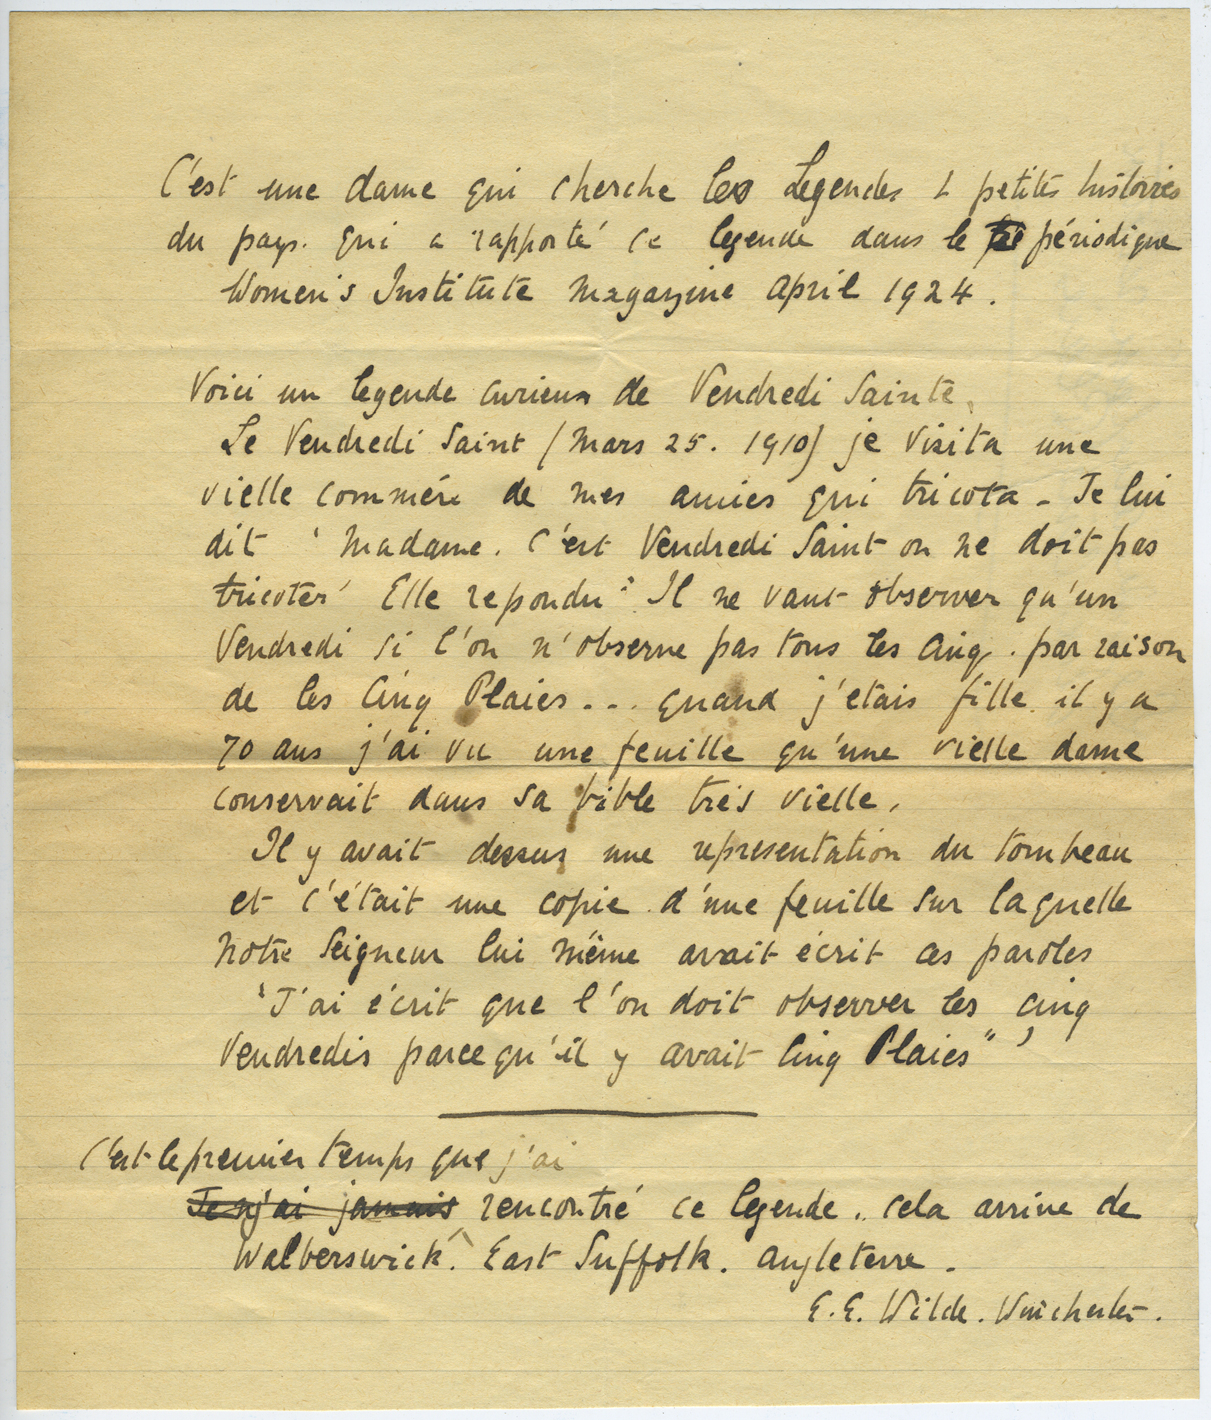 C'est une dame qui cherche les Legendes & petites histoires
du pays. qui a rapporté ce legende dans le périodique
Women's Institute Magazine April 1924.
Voici un legende curieux de Vendredi Sainte.
Le Vendredi Saint (Mars 25. 1910) je visita une
vielle commére de mes amies qui tricota - Je lui
dit 'Madame. C'est Vendredi Saint on ne doit pas
tricoter' Elle repondu: Il ne vaut observer qu'un
Vendredi si l'on n'observe pas tous les Cinq. par raison
de les Cinq Plaies... quand j'etais fille il y a
70 ans j'ai vu une feuille qu'une vielle dame
conservait dans sa bible trés vielle.
Il y avait dessus une representation du tombeau
et c'était une copie d'une feuille sur laquelle
Notre Seigneur lui même avait écrit ces paroles
'J'ai écrit que l'on doit observer les cinq
Vendredis parce qu'il y avait Cinq Plaies" '
C'est le premier temps que j'ai
Je n'ai jamais rencontré ce legende. cela arrive de
Walberswick. East Suffolk. Angleterre.
E.E. Wilde. Winchester.